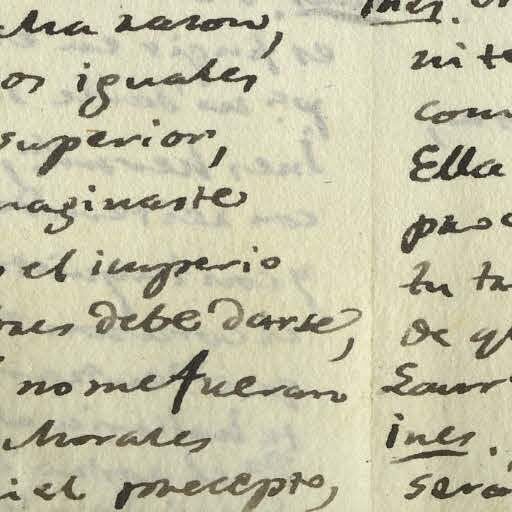 razon,
os iguales
superior,
maginaste
el imperio
debe darse,
no me fueran
Morales
el precepto,
Ines.
ni te
com
Ella
proc
tu ta
de q
Laur
ines.
será